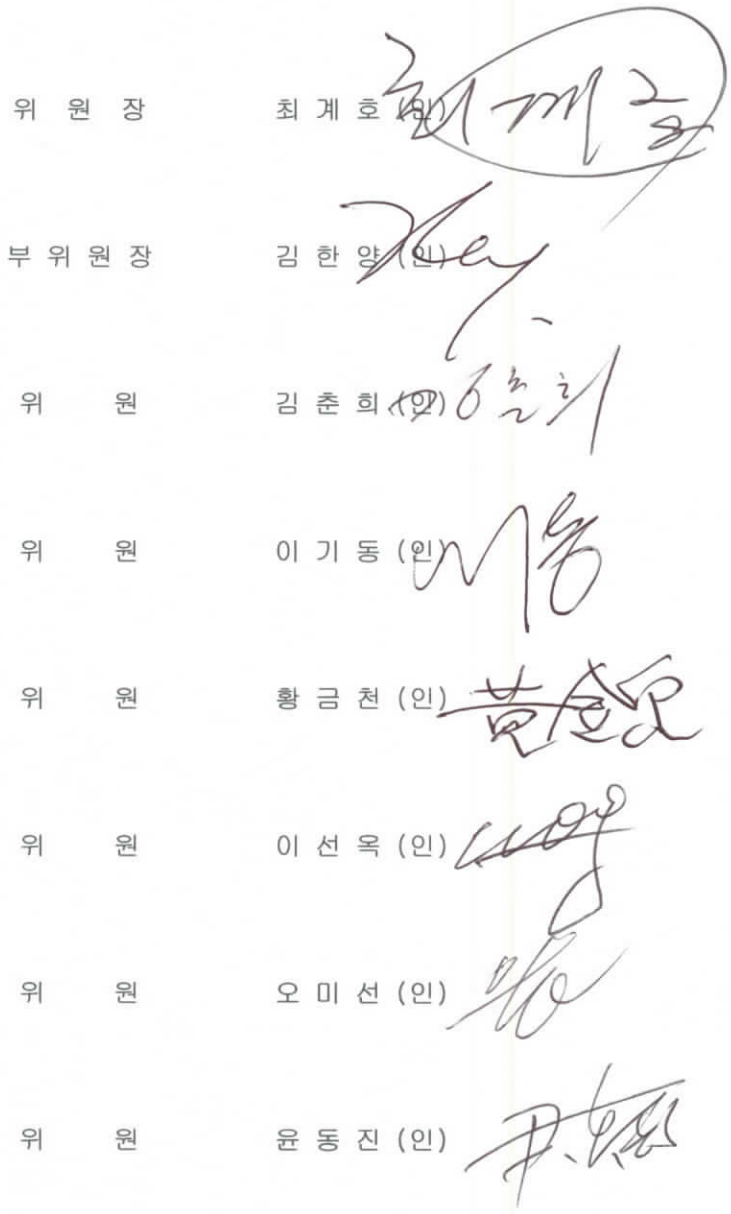 위 원 장 최 계 호 (인)
부 위 원 장 김 한 양 (인)
위 원 김 춘 희 (인)
위 원 이 기 동 (인)
위 원 황 금 천 (인)
위 원 이 선 옥 (인)
위 원 오 미 선 (인)
위 원 윤 동 진 (인)